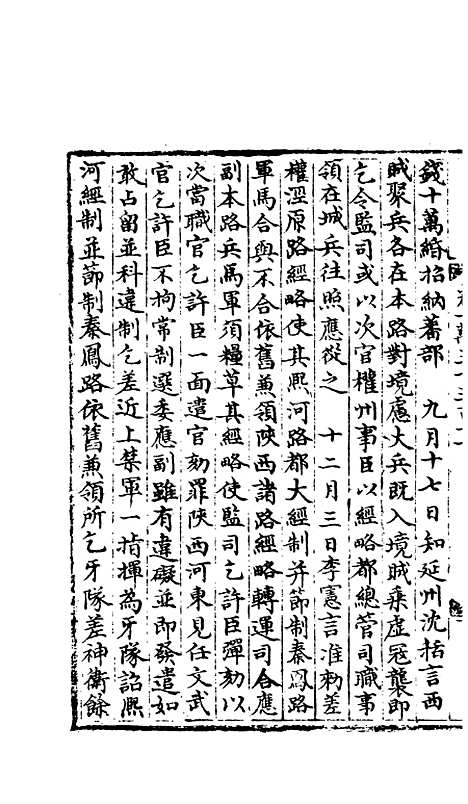 錢十萬緡招納蕃部　九月十七日知延州沈括言西
賊聚兵各在本路對境慮大兵既入境賊乘虛冦襲即
乞令監司或以次官權州事臣以經略都總管司職事
領在城兵往照應從之　十二月三日李憲言准勑差
權涇原路經略使其熙河路都大經制并節制秦鳳路
軍馬合與不合依舊兼領陝西諸路經略轉運司合應
副本路兵馬軍須糧草其經略使監司乞許臣彈劾以
次當職官乞許臣一面遣官劾罪陝西河東見任文武
官乞許臣不拘常制選委應副雖有違礙並即發遣如
敢占留並科違制乞差近上禁軍一指揮為牙隊詔熙
河經制並節制秦鳳路依舊兼領所乞牙隊差神衛餘